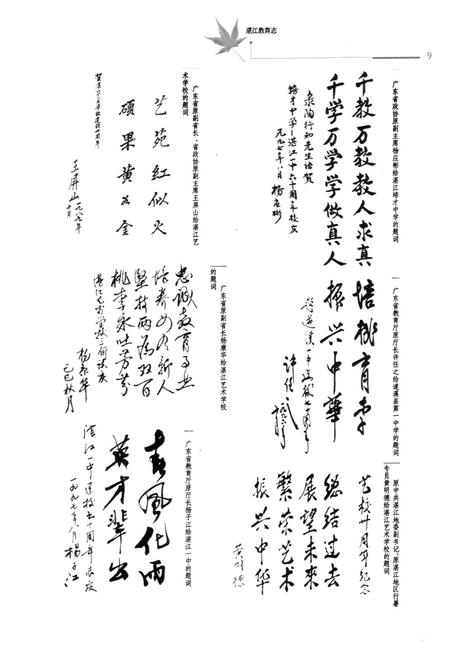 湛江教育志
9
广东省政协原副主席杨应彬给湛江培才中学的题词
千教万教教人求真
千学万学学做真人
录陶行知先生语贺
培才中学—湛江一中六十周年校庆
一九九七年八月 杨应彬
广东省原副省长、省政协原副主席王屏山给湛江艺
术学校的题词
艺苑红似火
硕果黄如金
王屏山 一九八九年
十月
广东省教育厅原厅长许任之给遂溪县第一中学的题词
培桃育李
振兴中华
贺遂溪一中建校七十周年
许任之 一九九六年
广东省原副省长杨康华给湛江艺术学校
的题词
忠诚教育事业
培养四有新人
坚持两为双百
桃李永吐芳芬
湛江艺术学校校庆
杨康华
己巳秋月
原中共湛江地委副书记、原湛江地区行署
专员黄明德给湛江艺术学校的题词
艺校卅周年纪念
总结过去
展望未来
繁荣艺术
振兴中华
黄明德
广东省教育厅原厅长杨子江给湛江一中的题词
春风化雨
英才辈出
湛江一中建校六十周年志庆
一九九七年八月 杨子江